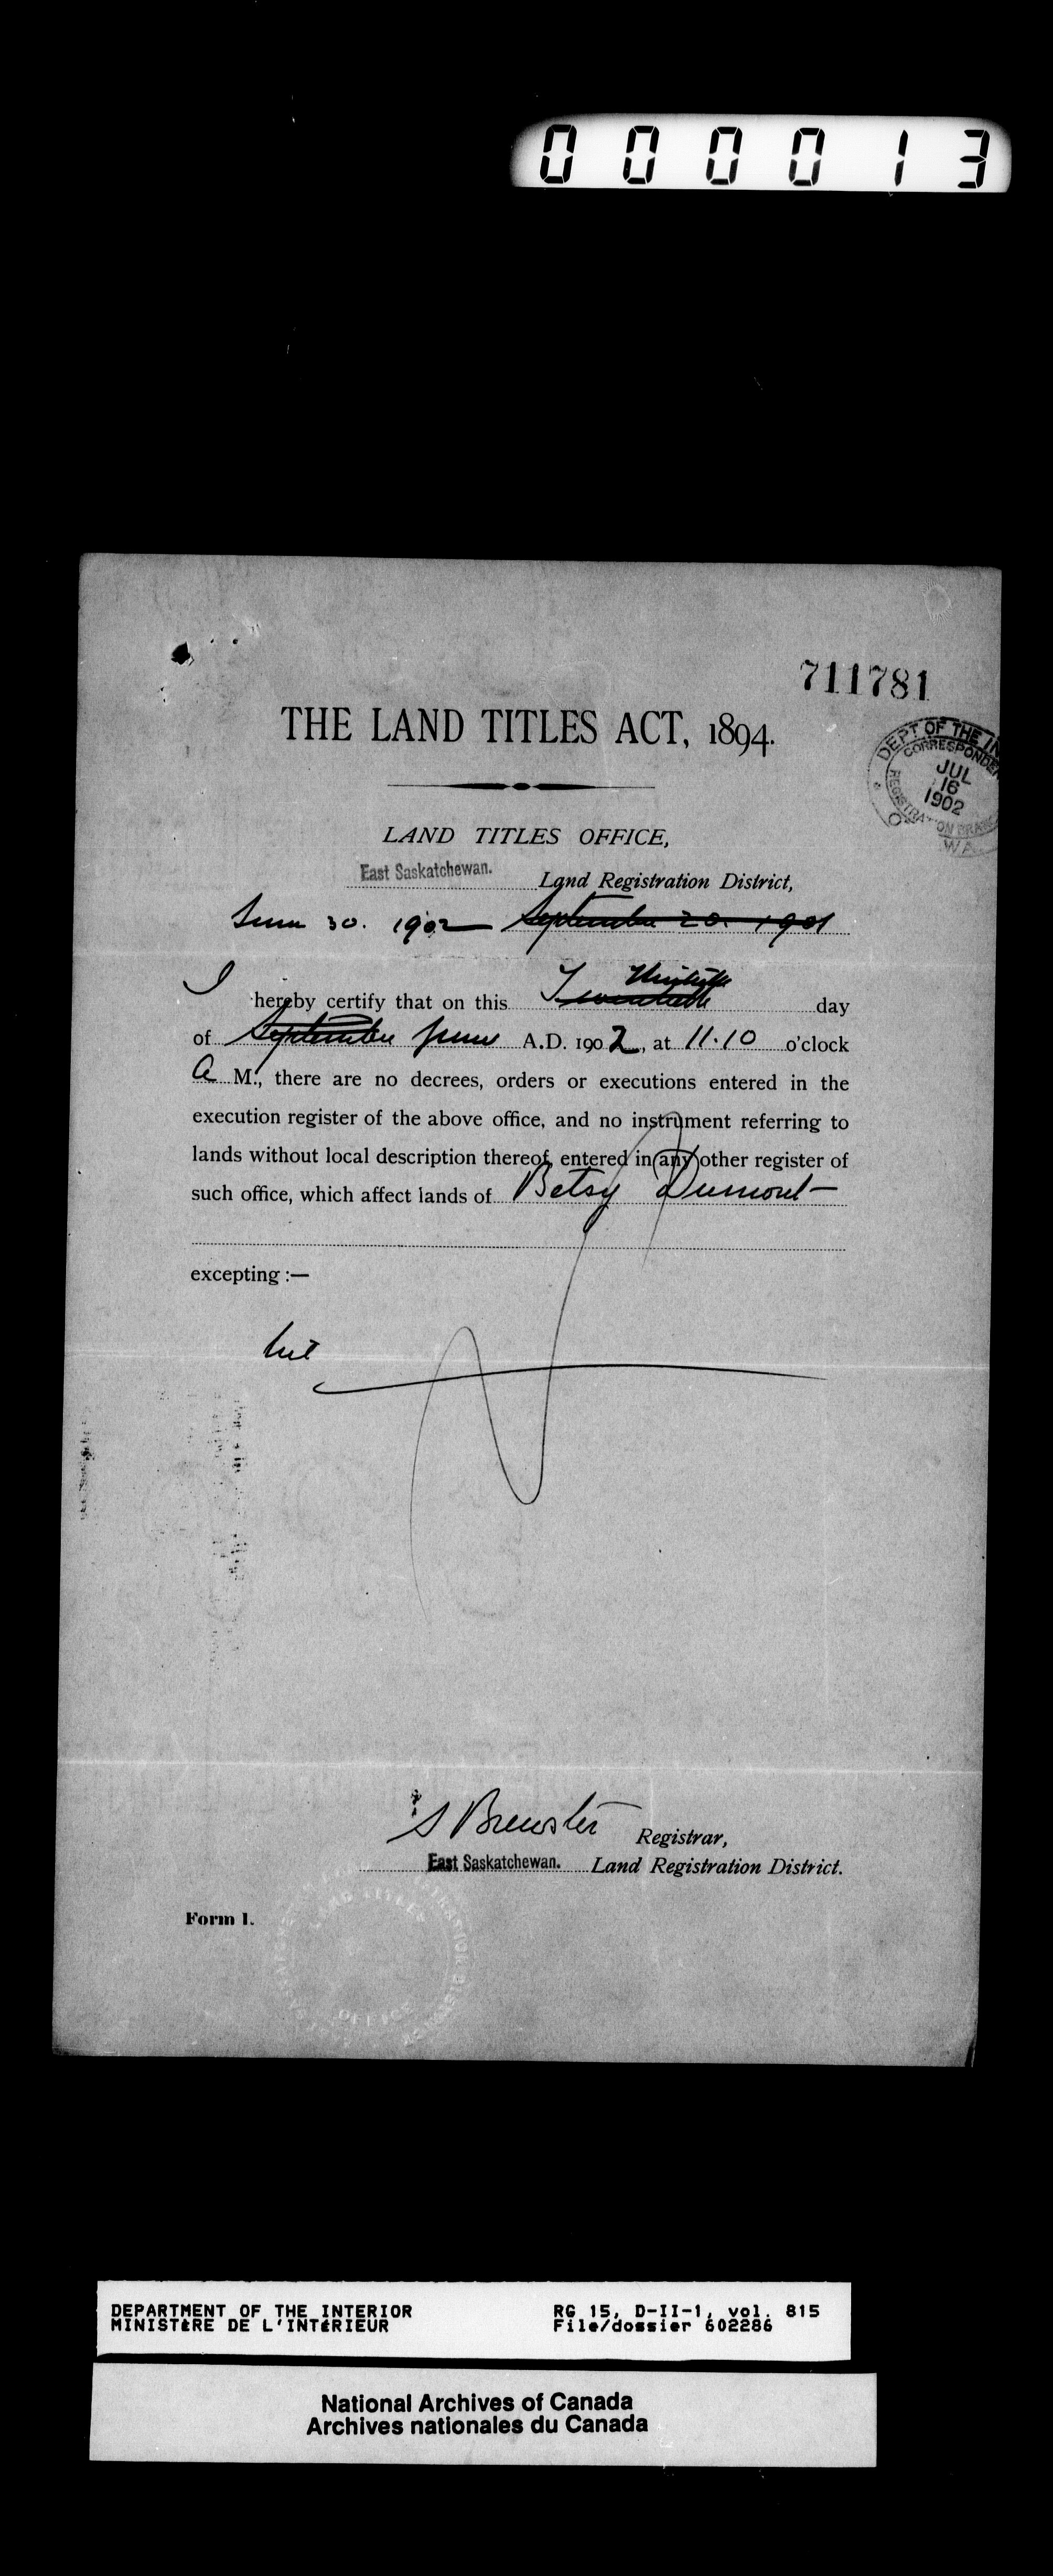 000013
711781
THE LAND TITLES ACT, 1894.
DEPT OF THE IN
CORRESPONDEN
JUL
16
1902
REGISTRATION BRAN
LAND TITLES OFFICE,
East Saskatchewan. Land Registration District,
June 30. 1902 September 20. 1901
I hereby certify that on this Twentieth Thirtieth day
of September June A.D. 1902, at 11.10 o'clock
A M., there are no decrees, orders or executions entered in the
execution register of the above office, and no instrument referring to
lands without local description thereof, entered in any other register of
such office, which affect lands of Betsy Dumont
excepting :—
Nil
S Brewster Registrar,
East Saskatchewan. Land Registration District.
Form I.
LAND TITLES
OFFICE
DEPARTMENT OF THE INTERIOR
MINISTÈRE DE L'INTÉRIEUR
RG 15, D-II-1, vol. 815
File/dossier 602286
National Archives of Canada
Archives nationales du Canada